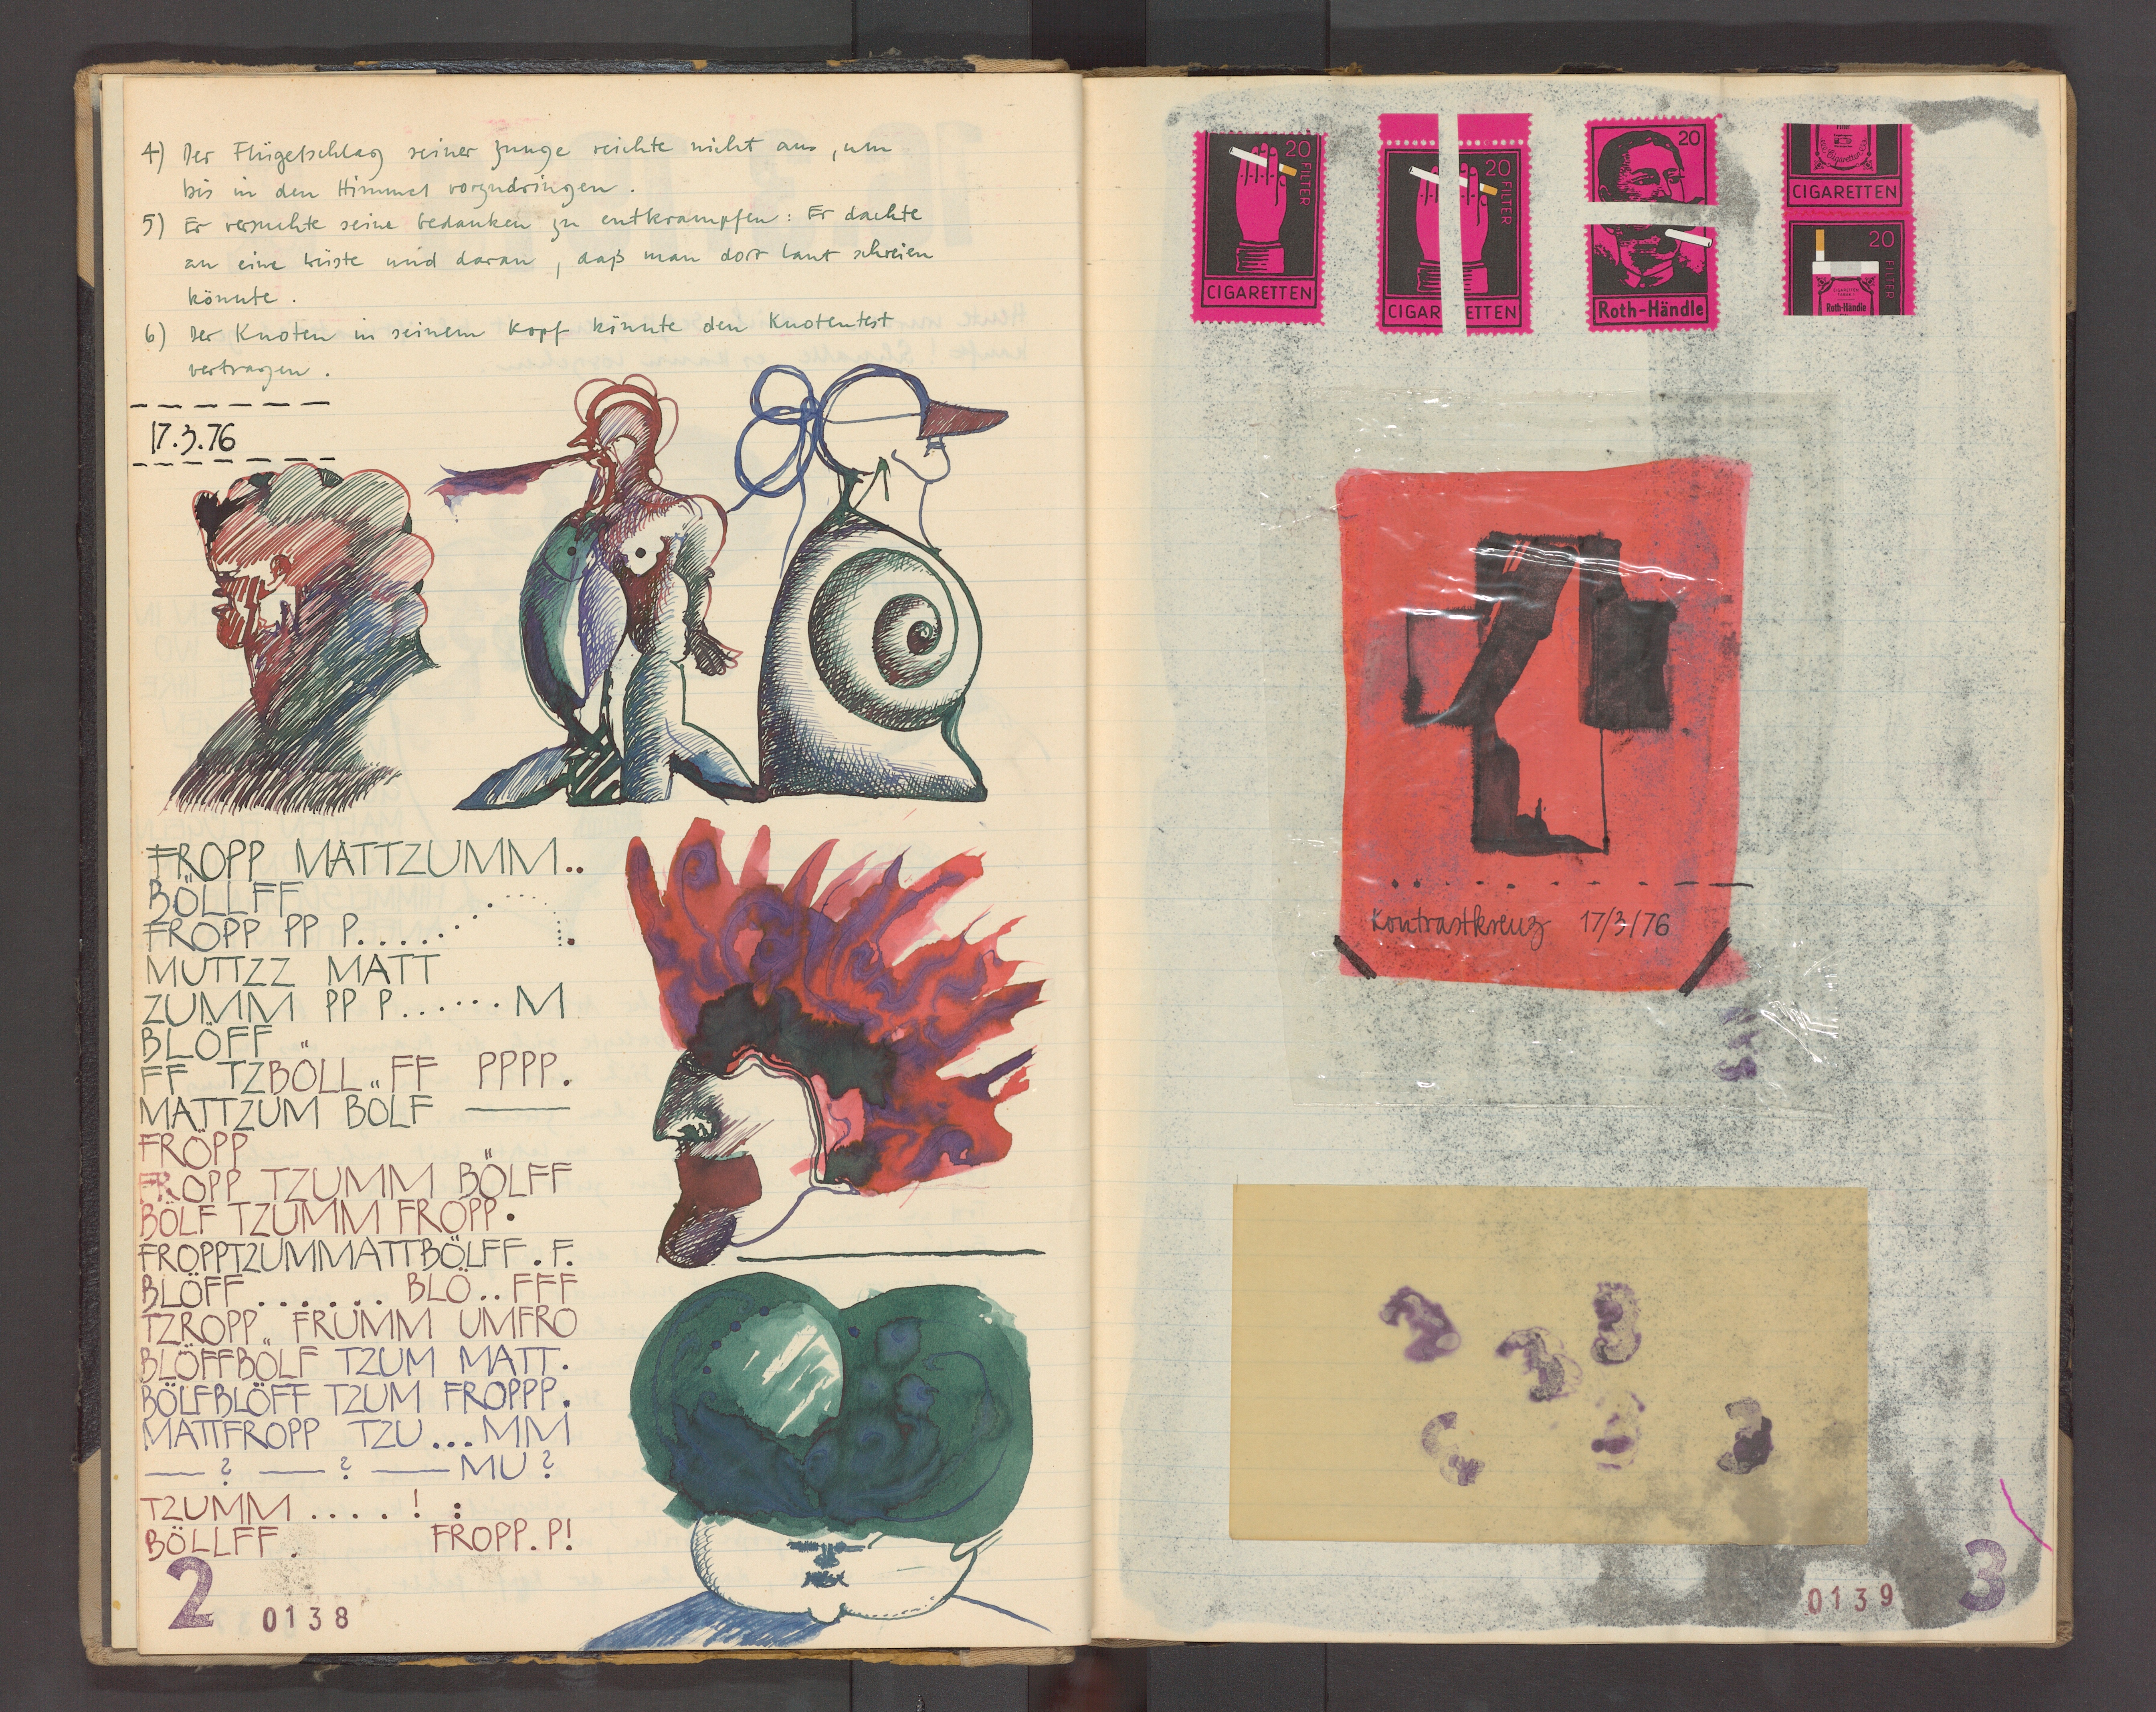 4) Der Flügelschlag seiner Zunge reichte nicht aus, um
bis in den Himmel vorzudringen.
5) Er versuchte seine Gedanken zu entkrampfen: Er dachte
an eine Wüste und daran, daß man dort laut schreien
könnte.
6) Der Knoten in seinem Kopf könnte den Knotentest
vertragen.
17.3.76
FROPP MATTZUMM..
BÖLLFF
FROPP PP P......
MUTTZZ MATT
ZUMM PP P...... M
BLÖFF
FF TZBÖLL.. FF PPPP.
MATTZUM BÖLF
FRÖPP
FROPP TZUMM BÖLFF
BÖLF TZUMM FROPP.
FROPPTZUMMATTBÖLFF. F.
BLÖFF....... BLÖ.. FFF
TZROPP.. FRUMM UMFRO
BLÖFFBÖLF TZUM MATT.
BÖLFBLÖFF TZUM FROPPP.
MATTFROPP TZU...MM
— ? — ? — MU ?
TZUMM ....! :
BÖLLFF. FROPP.P!
2 0138
20 FILTER
CIGARETTEN
20 FILTER
CIGARETTEN
20
Roth-Händle
Cigaretten
CIGARETTEN
20 FILTER
Roth-Händle
Kontrastkreuz 17/3/76
0139 3